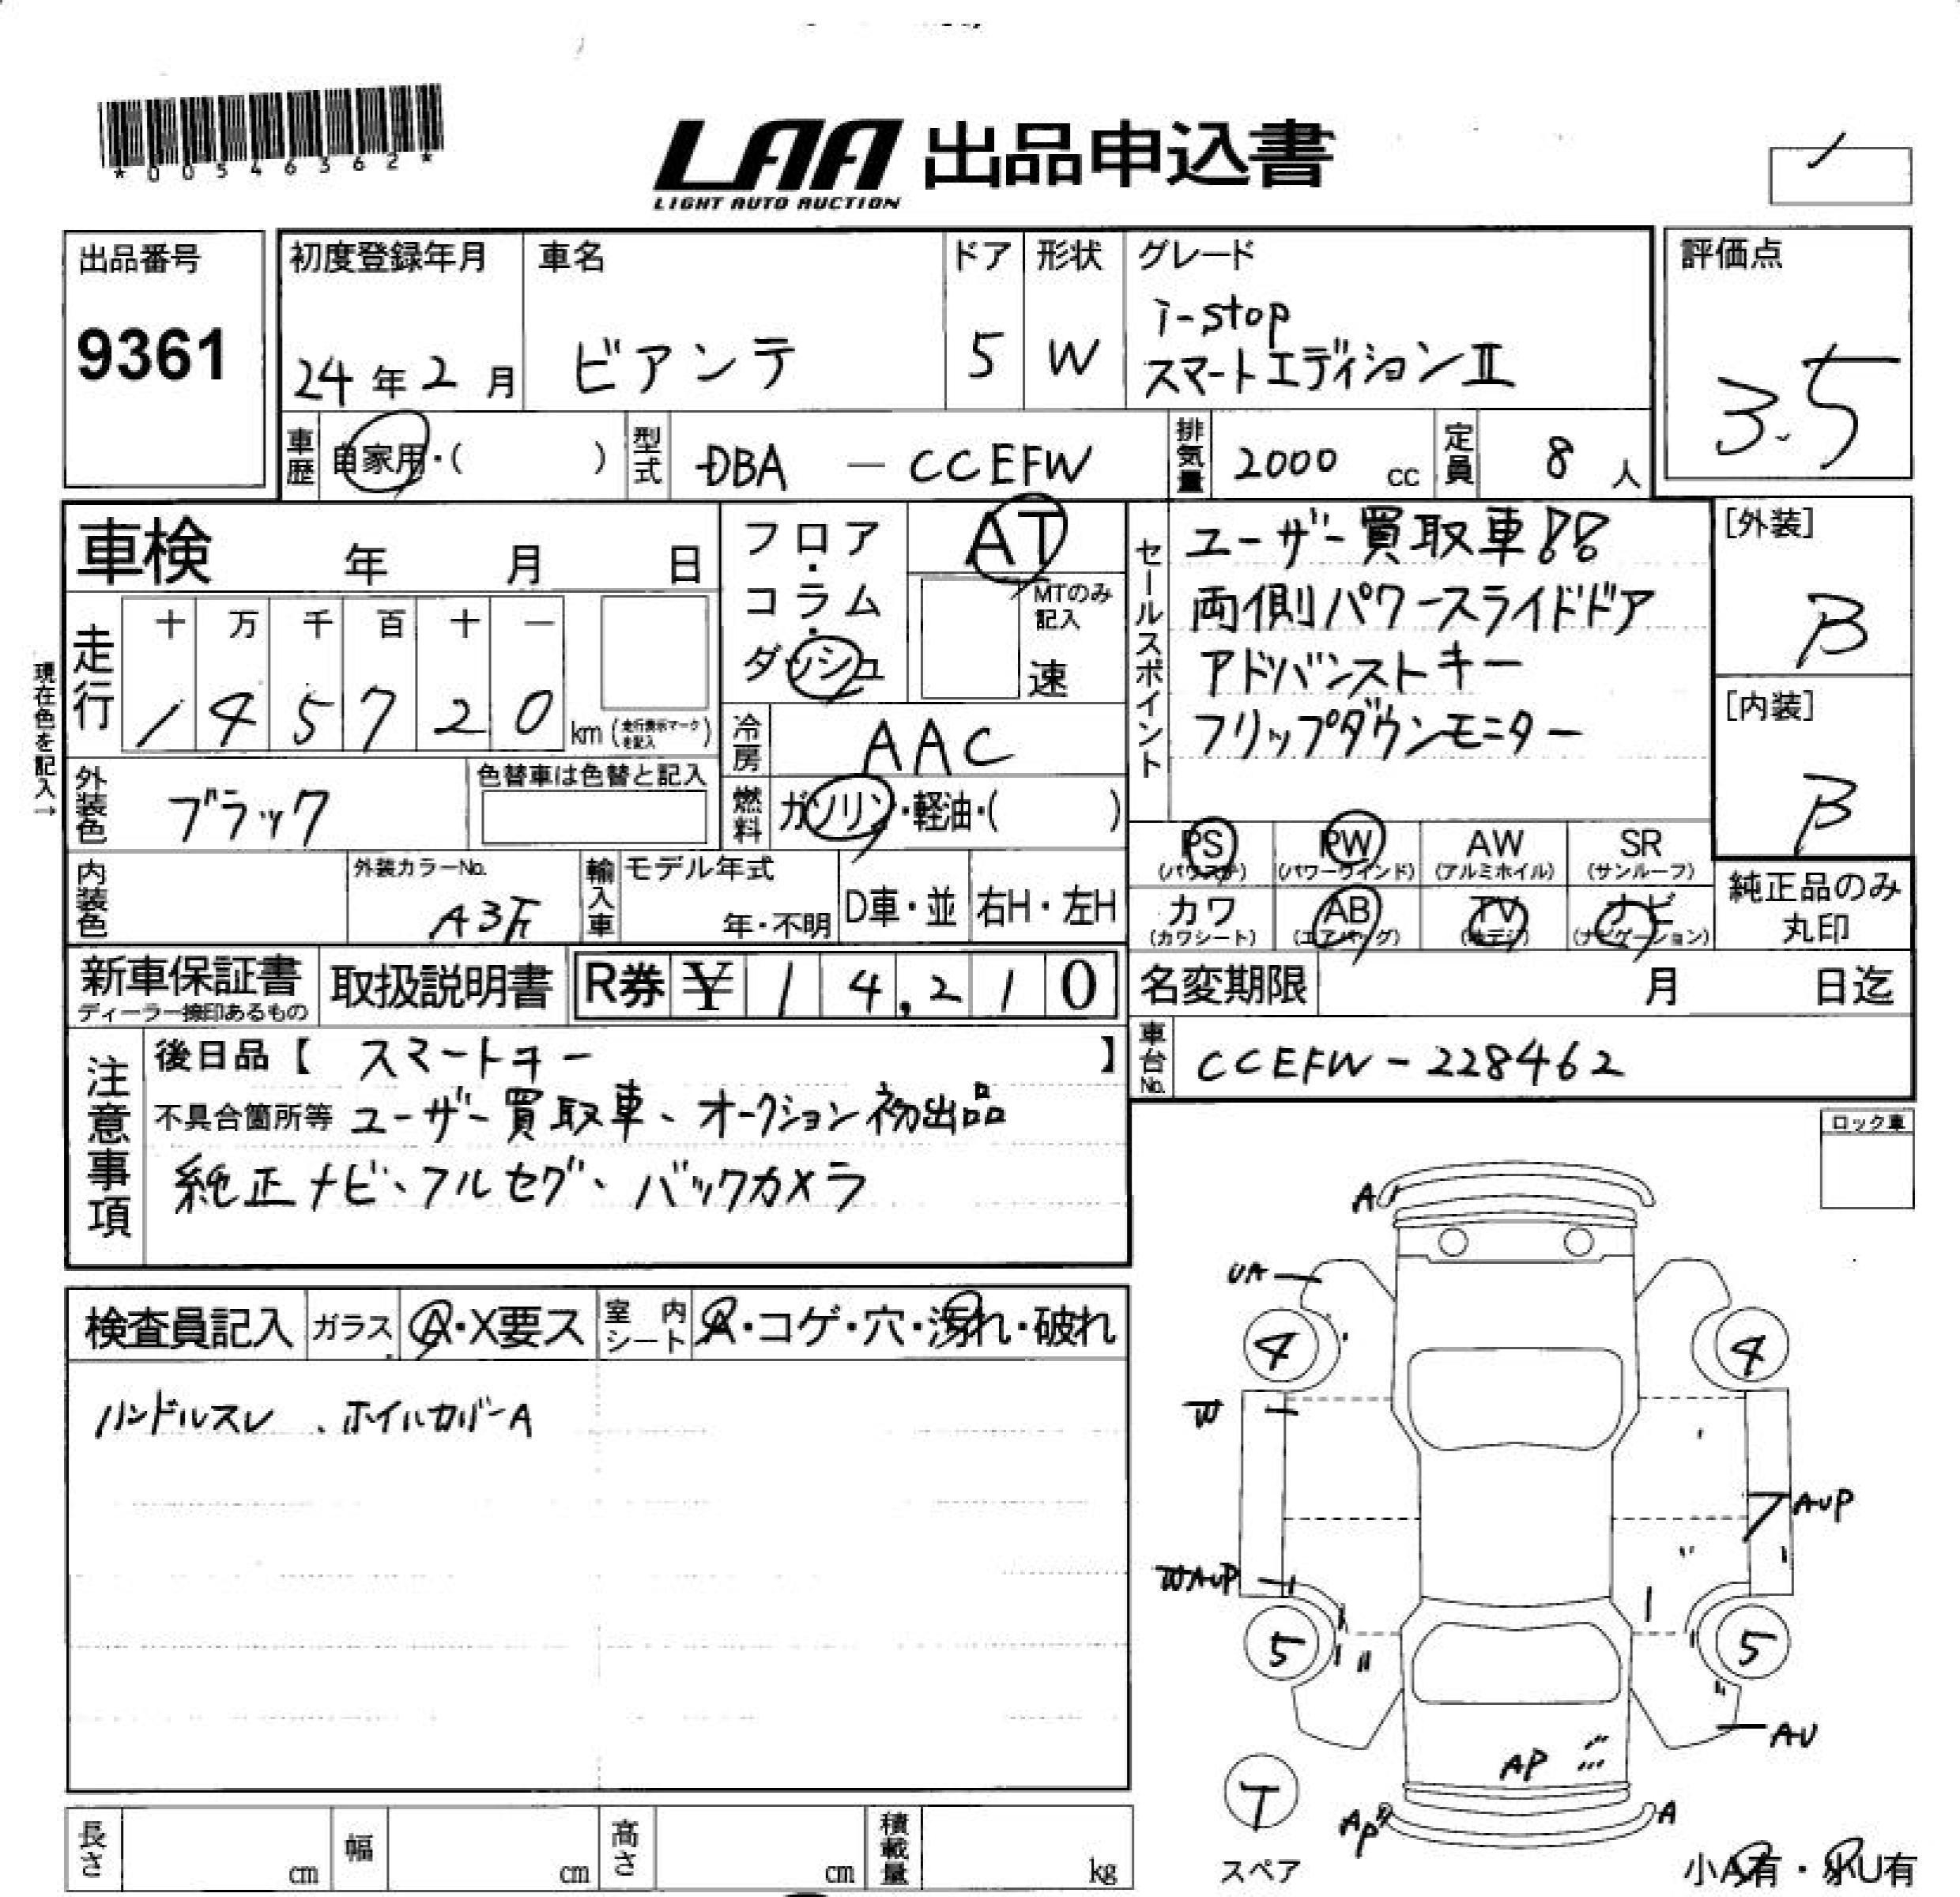 *00546362*
LAA 出品申込書
LIGHT AUTO AUCTION
出品番号
9361
初度登録年月
24年2月
車名
ビアンテ
ドア
5
形状
W
グレード
i-stop
スマートエディションⅡ
評価点
3.5
車歴
自家用・( )
型式
DBA - CCEFW
排気量
2000 cc
定員
8 人
車検 年 月 日
フロア・
コラム・
ダッシュ
AT
MTのみ
記入
速
セールスポイント
ユーザー買取車!!
両側パワースライドドア
アドバンストキー
フリップダウンモニター
[外装]
B
[内装]
B
現在色を記入→
走行
十 万 千 百 十 一
1 4 5 7 2 0
km (走行表示マークを記入)
冷房
AAC
外装色
ブラック
色替車は色替と記入
燃料
ガソリン・軽油・( )
PS
(パワステ)
PW
(パワーウインド)
AW
(アルミホイル)
SR
(サンルーフ)
カワ
(カワシート)
AB
(エアバッグ)
TV
(地デジ)
ナビ
(ナビゲーション)
純正品のみ
丸印
内装色
外装カラーNo.
A3F
輸入車
モデル年式
年・不明
D車・並
右H・左H
新車保証書
ディーラー捺印あるもの
取扱説明書
R券 ¥ 14,210
名変期限 月 日迄
車台No.
CCEFW-228462
注意事項
後日品【 スマートキー 】
不具合箇所等 ユーザー買取車、オークション初出品
純正ナビ、フルセグ、バックカメラ
ロック車
検査員記入
ガラス
A・X要ス
室内シート
A・コゲ・穴・汚れ・破れ
ハンドルスレ、ホイルカバーA
A
UA
4
4
W
AUP
WAUP
5
5
AU
AP
T
スペア
AP
A
小A有・小U有
長さ cm
幅 cm
高さ cm
積載量 kg